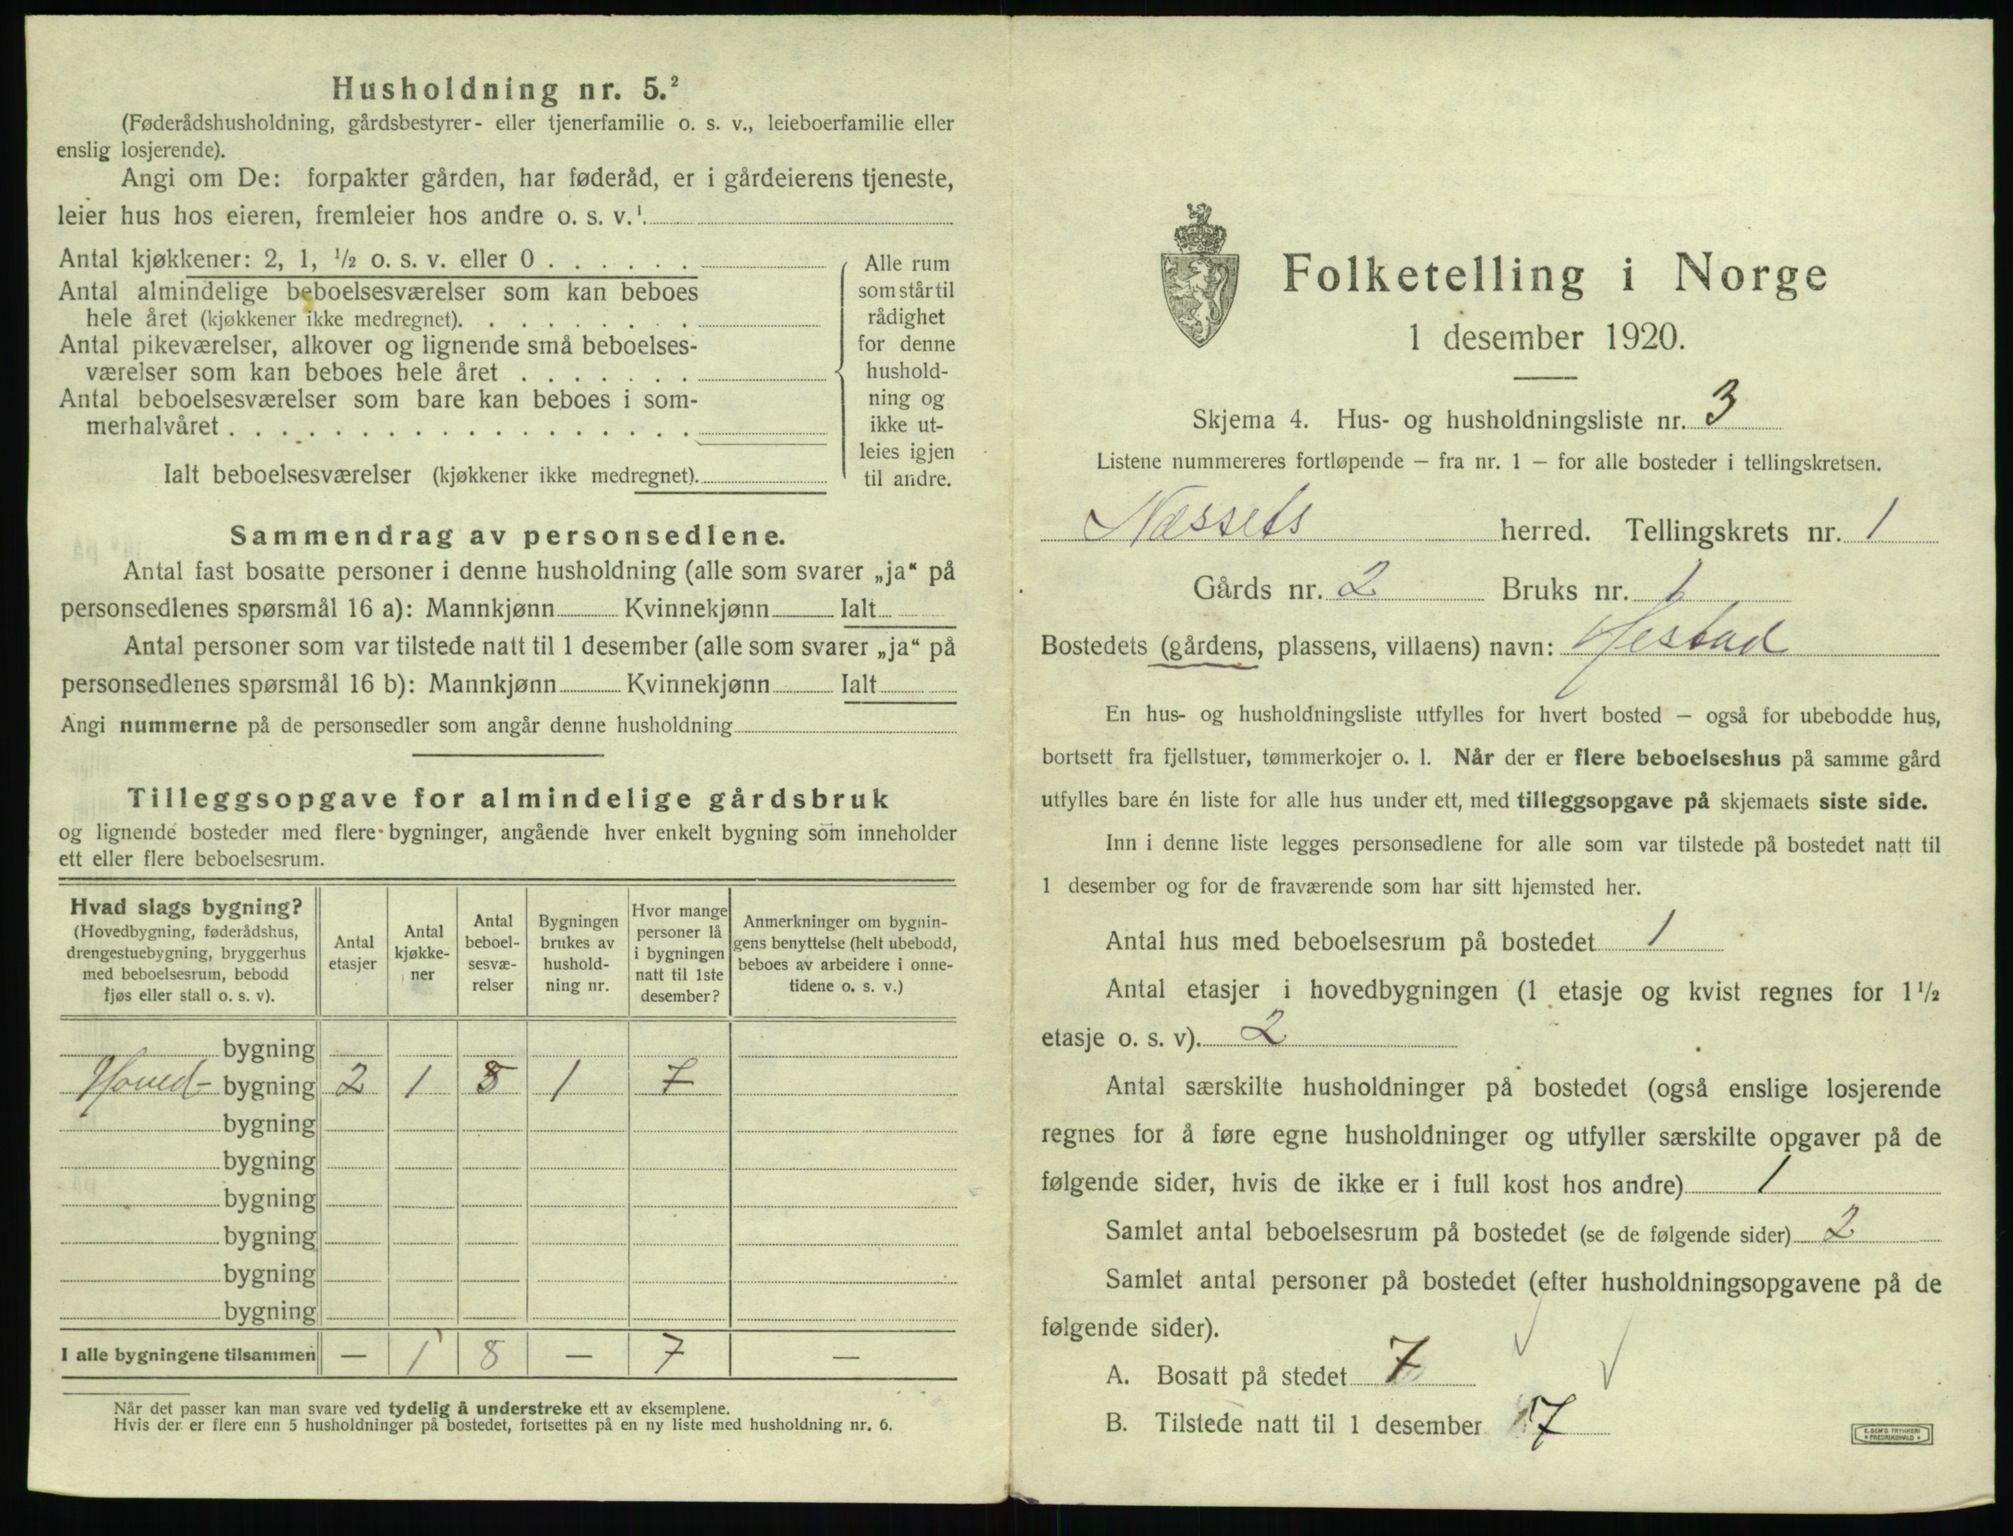 Husholdning nr. 5.²
(Føderådshusholdning, gårdsbestyrer- eller tjenerfamilie o. s. v., leieboerfamilie eller
enslig losjerende).
Angi om De: forpakter gården, har føderåd, er i gårdeierens tjeneste,
leier hus hos eieren, fremleier hos andre o. s. v.¹
Antal kjøkkener: 2, 1, ½ o. s. v. eller 0
Antal almindelige beboelsesværelser som kan beboes
hele året (kjøkkener ikke medregnet).
Antal pikeværelser, alkover og lignende små beboelses-
værelser som kan beboes hele året
Antal beboelsesværelser som bare kan beboes i som-
merhalvåret
Ialt beboelsesværelser (kjøkkener ikke medregnet).
Alle rum
som står til
rådighet
for denne
hushold-
ning og
ikke ut-
leies igjen
til andre.
Sammendrag av personsedlene.
Antal fast bosatte personer i denne husholdning (alle som svarer „ja“ på
personsedlenes spørsmål 16 a): Mannkjønn Kvinnekjønn Ialt
Antal personer som var tilstede natt til 1 desember (alle som svarer „ja“ på
personsedlenes spørsmål 16 b): Mannkjønn Kvinnekjønn Ialt
Angi nummerne på de personsedler som angår denne husholdning
Tilleggsopgave for almindelige gårdsbruk
og lignende bosteder med flere bygninger, angående hver enkelt bygning som inneholder
ett eller flere beboelsesrum.
Hvad slags bygning?
(Hovedbygning, føderådshus,
drengestuebygning, bryggerhus
med beboelsesrum, bebodd
fjøs eller stall o. s. v).
Antal
etasjer
Antal
kjøkke-
ner
Antal
beboel-
sesvæ-
relser
Bygningen
brukes av
hushold-
ning nr.
Hvor mange
personer lå
i bygningen
natt til 1ste
desember?
Anmerkninger om bygnin-
gens benyttelse (helt ubebodd,
beboes av arbeidere i onne-
tidene o. s. v.)
bygning
Hoved- bygning 2 1 8 1 7
bygning
bygning
bygning
bygning
bygning
bygning
I alle bygningene tilsammen — 1 8 — 7 —
Når det passer kan man svare ved tydelig å understreke ett av eksemplene.
Hvis der er flere enn 5 husholdninger på bostedet, fortsettes på en ny liste med husholdning nr. 6.
Folketelling i Norge
1 desember 1920.
Skjema 4. Hus- og husholdningsliste nr. 3
Listene nummereres fortløpende – fra nr. 1 – for alle bosteder i tellingskretsen.
Næssets herred. Tellingskrets nr. 1
Gårds nr. 2 Bruks nr. 1
Bostedets (gårdens, plassens, villaens) navn: Hestad
En hus- og husholdningsliste utfylles for hvert bosted – også for ubebodde hus,
bortsett fra fjellstuer, tømmerkojer o. l. Når der er flere beboelseshus på samme gård
utfylles bare én liste for alle hus under ett, med tilleggsopgave på skjemaets siste side.
Inn i denne liste legges personsedlene for alle som var tilstede på bostedet natt til
1 desember og for de fraværende som har sitt hjemsted her.
Antal hus med beboelsesrum på bostedet 1
Antal etasjer i hovedbygningen (1 etasje og kvist regnes for 1½
etasje o. s. v). 2
Antal særskilte husholdninger på bostedet (også enslige losjerende
regnes for å føre egne husholdninger og utfyller særskilte opgaver på de
følgende sider, hvis de ikke er i full kost hos andre) 1
Samlet antal beboelsesrum på bostedet (se de følgende sider) 2
Samlet antal personer på bostedet (efter husholdningsopgavene på de
følgende sider).
A. Bosatt på stedet 7
B. Tilstede natt til 1 desember 7
E. SEM'S TRYKKERI
FREDRIKSHALD